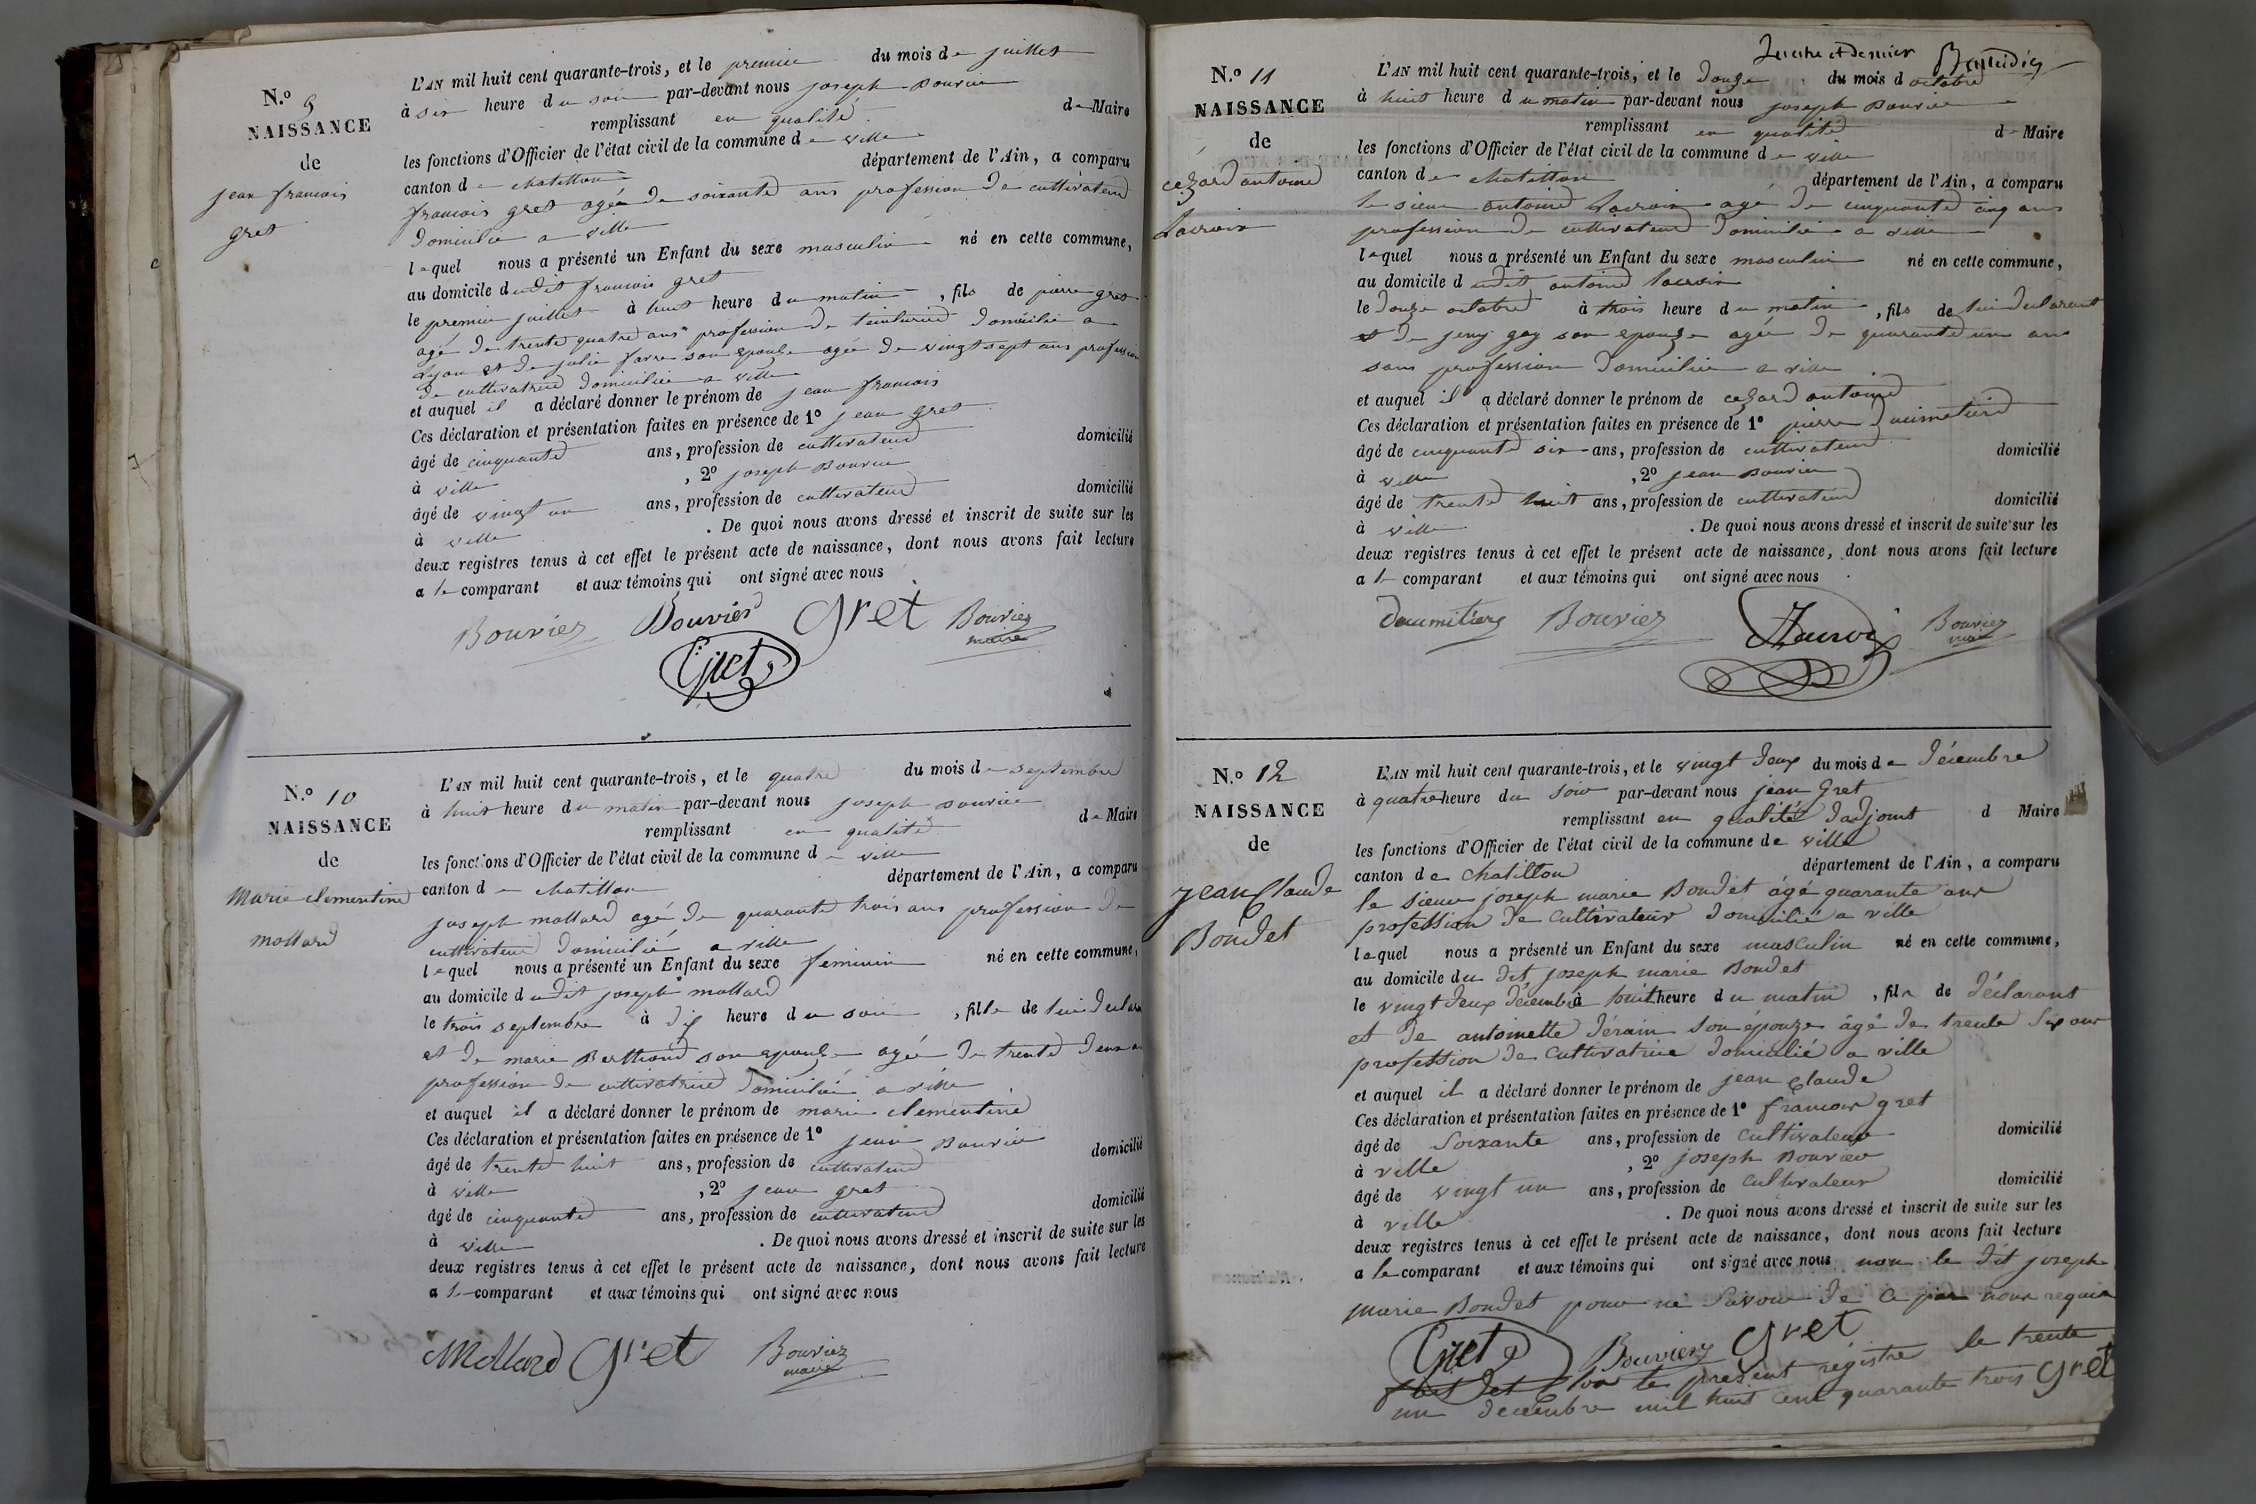 N.o 9
NAISSANCE
de
jean francois
gret
L'AN mil huit cent quarante-trois, et le premier du mois de juillet
à six heure du soir par-devant nous joseph Bouvier
remplissant en qualité de Maire
les fonctions d'Officier de l'état civil de la commune de ville
canton de chatillon département de l'Ain, a comparu
francois gret agée de soixante ans profession de cultivateur
domicilie a ville
lequel nous a présenté un Enfant du sexe masculin né en cette commune,
au domicile dudit francois gret
le premier juillet à huit heure du matin, fils de pierre gret
agé de trente quatre ans profession de teinturier domicilie a
Lyon et de julie farre son epouze agée de vingt sept ans profession
de cultivatrice domiciliée a ville
et auquel il a déclaré donner le prénom de jean francois
Ces déclaration et présentation faites en présence de 1o jean gret
âgé de cinquante ans, profession de cultivateur domicilié
à ville, 2o joseph Bouvier
âgé de vingt un ans, profession de cultivateur domicilié
à ville. De quoi nous avons dressé et inscrit de suite sur les
deux registres tenus à cet effet le présent acte de naissance, dont nous avons fait lecture
a le comparant et aux témoins qui ont signé avec nous
Bouvier Bouvier gret Bouvier
maire
Gret
N.o 10
NAISSANCE
de
Marie clementine
mollard
L'AN mil huit cent quarante-trois, et le quatre du mois de septembre
à huit heure du matin par-devant nous joseph Bouvier
remplissant en qualité de Maire
les fonctions d'Officier de l'état civil de la commune de ville
canton de chatillon département de l'Ain, a comparu
joseph mollard agé de quarante trois ans profession de
cultivateur domicilié a ville
lequel nous a présenté un Enfant du sexe feminin né en cette commune,
au domicile dudit joseph mollard
le trois septembre à dix heure du soir, fille de lui declarant
et de marie Berthond son epouze agée de trente deux ans
profession de cultivatrice domiciliée a ville
et auquel il a déclaré donner le prénom de marie clementine
Ces déclaration et présentation faites en présence de 1o jean Bouvier
âgé de trente huit ans, profession de cultivateur domicilié
à ville, 2o jean gret
âgé de cinquante ans, profession de cultivateur domicilié
à ville. De quoi nous avons dressé et inscrit de suite sur les
deux registres tenus à cet effet le présent acte de naissance, dont nous avons fait lecture
a le comparant et aux témoins qui ont signé avec nous
Mollard Gret Bouvier
maire
et dernier
N.o 11
NAISSANCE
de
cezard antoine
Lacroix
L'AN mil huit cent quarante-trois, et le douze du mois d octobre
à huit heure du matin par-devant nous joseph Bouvier
remplissant en qualité de Maire
les fonctions d'Officier de l'état civil de la commune de ville
canton de chatillon département de l'Ain, a comparu
le sieur antoine Lacroix agé de cinquante cinq ans
profession de cultivateur domicilie a ville
lequel nous a présenté un Enfant du sexe masculin né en cette commune,
au domicile dudit antoine lacroix
le douze octobre à trois heure du matin, fils de lui declarant
et de jeny gay son epouze agée de quarante un ans
sans profession domiciliée a ville
et auquel il a déclaré donner le prénom de cezard antoine
Ces déclaration et présentation faites en présence de 1o pierre
âgé de cinquante six ans, profession de cultivateur domicilié
à ville, 2o jean Bouvier
âgé de trente huit ans, profession de cultivateur domicilié
à ville. De quoi nous avons dressé et inscrit de suite sur les
deux registres tenus à cet effet le présent acte de naissance, dont nous avons fait lecture
a le comparant et aux témoins qui ont signé avec nous
Bouvier Lacroix Bouvier
maire
N.o 12
NAISSANCE
de
jean Claude
Boudet
L'AN mil huit cent quarante-trois, et le vingt deux du mois de décembre
à quatre heure du soir par-devant nous jean Gret
remplissant en qualité d'adjoint d Maire
les fonctions d'Officier de l'état civil de la commune de ville
canton de chatillon département de l'Ain, a comparu
le sieur joseph marie Boudet âgé quarante ans
profession de cultivateur domicilié a ville
lequel nous a présenté un Enfant du sexe masculin né en cette commune,
au domicile du dit joseph marie Boudet
le vingt deux décembre à huit heure du matin, fils de déclarant
et de antoinette dérain son épouze âgé de trente six ans
profession de cultivatrice domicilié a ville
et auquel il a déclaré donner le prénom de jean claude
Ces déclaration et présentation faites en présence de 1o francois gret
âgé de soixante ans, profession de cultivateur domicilié
à ville, 2o joseph Bouvier
âgé de vingt un ans, profession de cultivateur domicilié
à ville. De quoi nous avons dressé et inscrit de suite sur les
deux registres tenus à cet effet le présent acte de naissance, dont nous avons fait lecture
a le comparant et aux témoins qui ont signé avec nous non le dit joseph
marie Boudet pour ne savoir de ce par nous requis
Gret Bouvier gret
le présent régistre le trente
un décembre mil huit cent quarante trois Gret